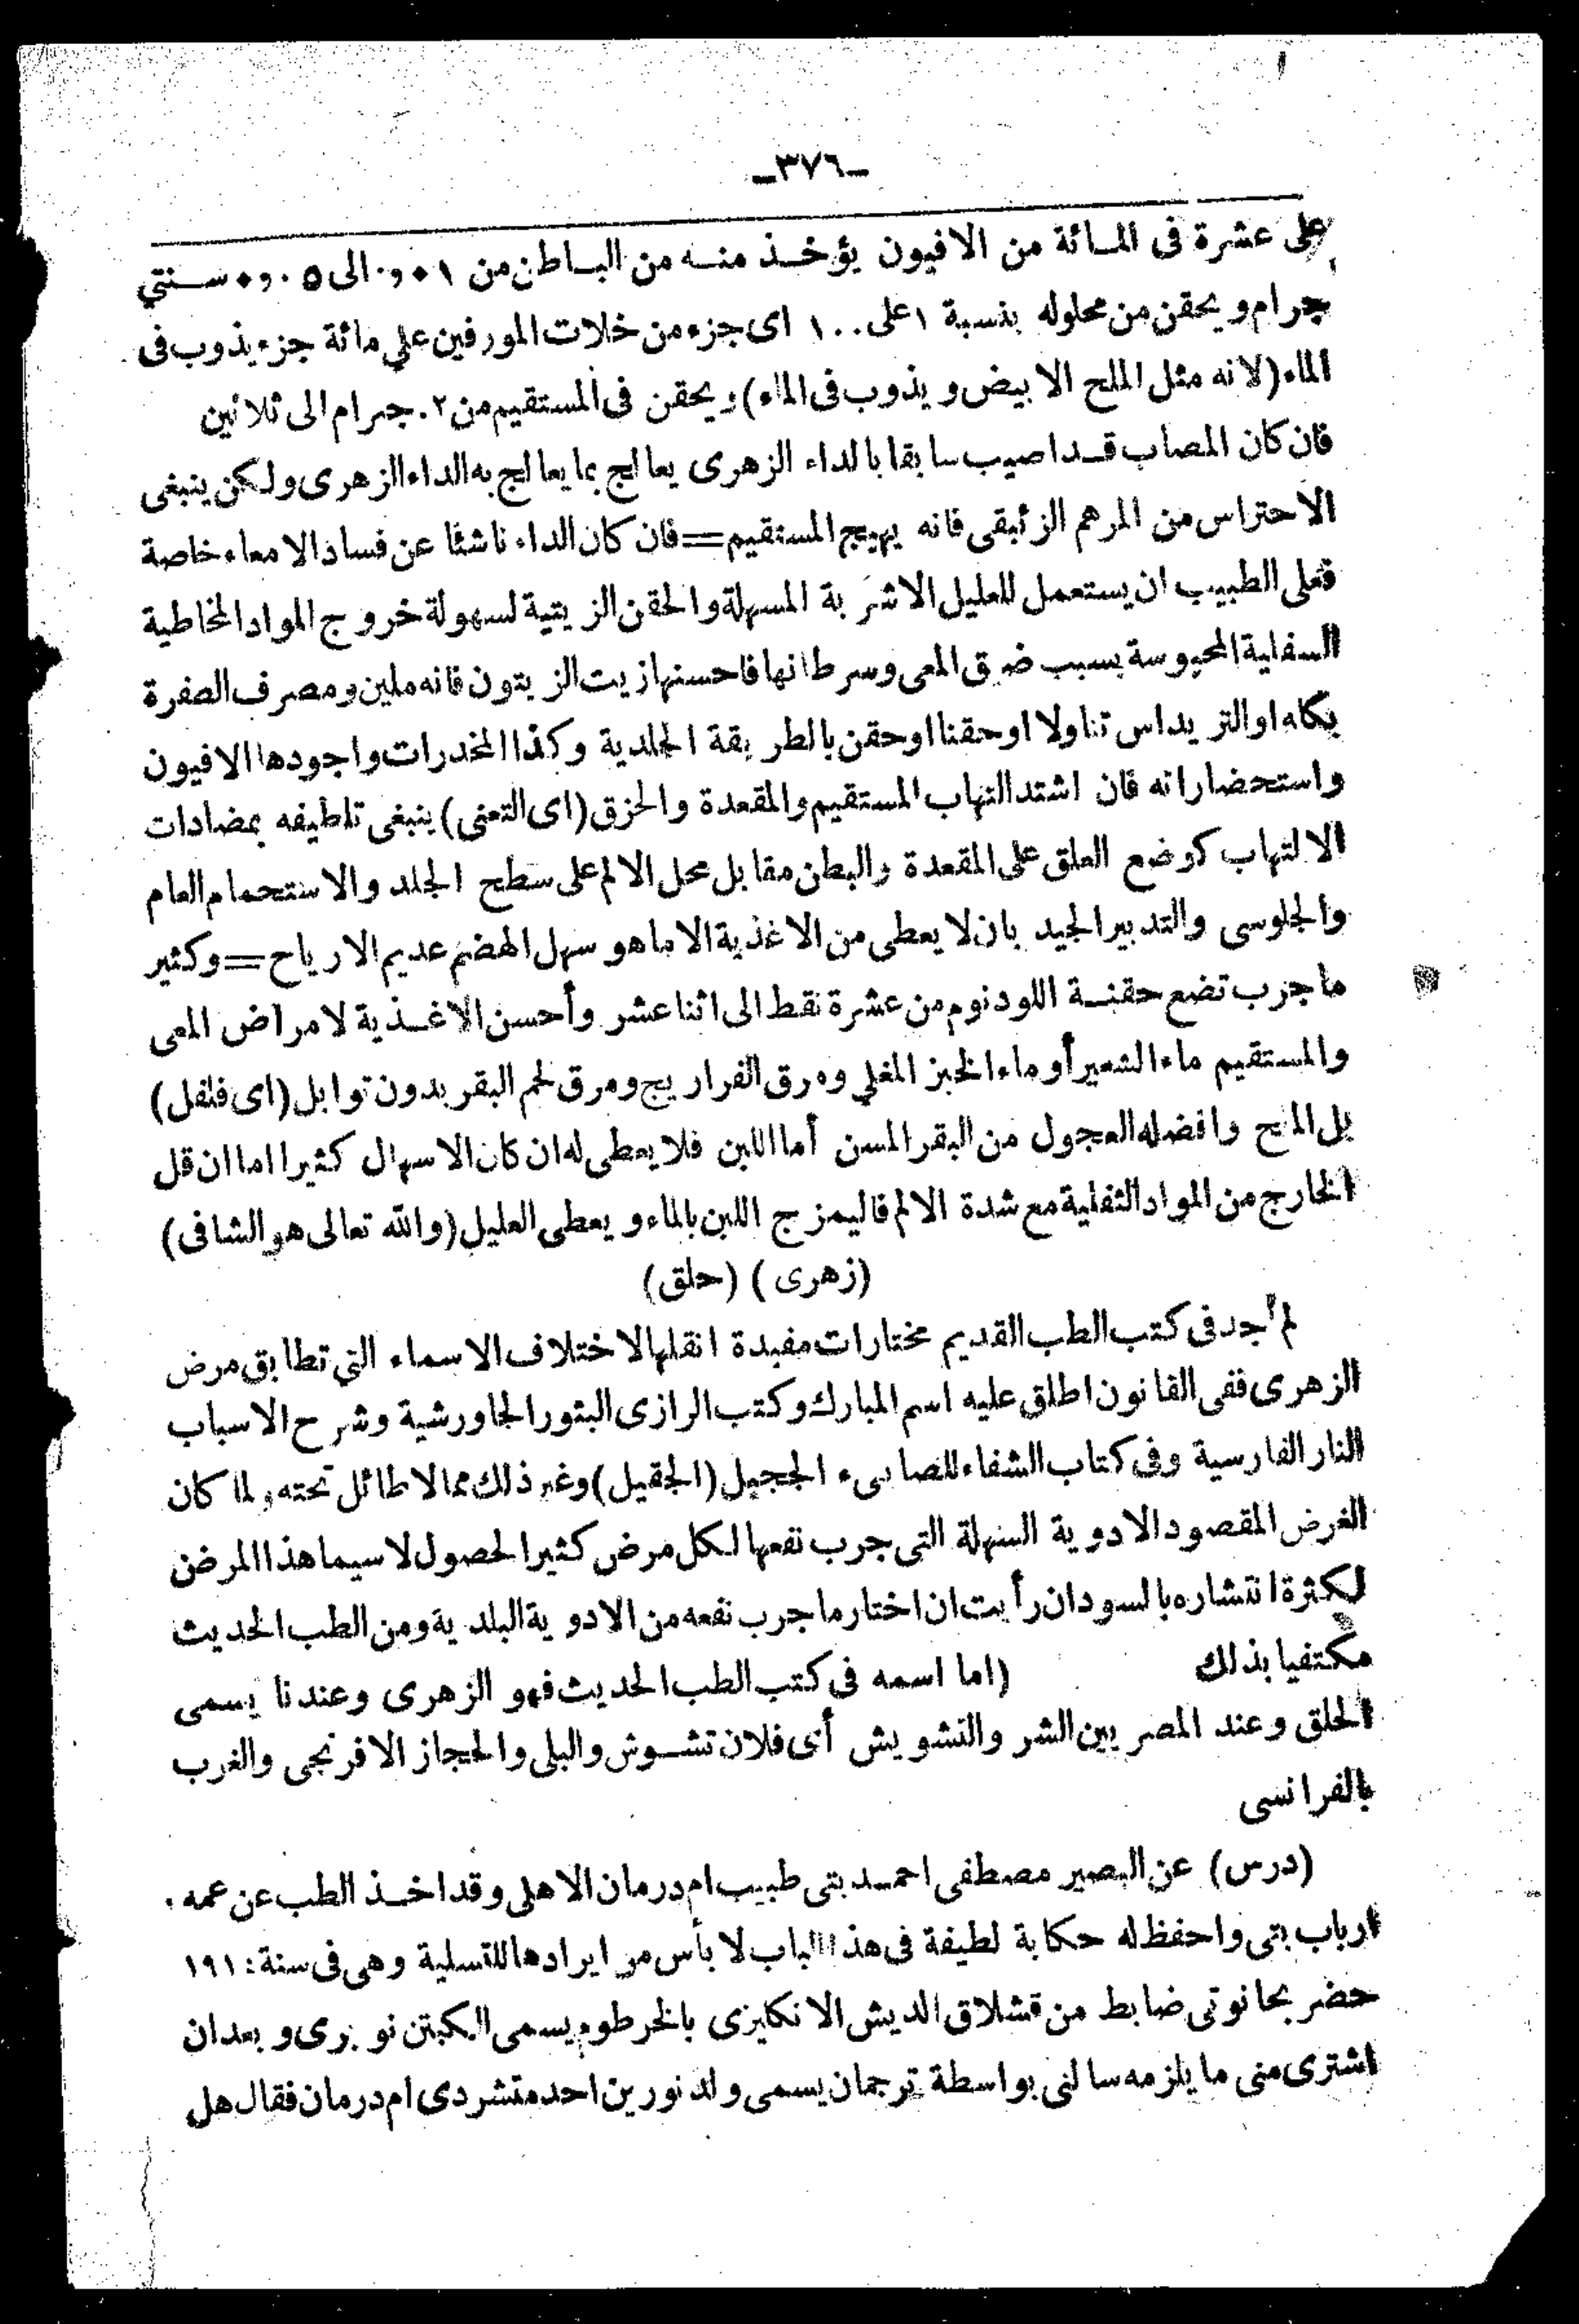 ـ٣٧٦ـ
على عشرة فى المائة من الافيون يؤخذ منه من الباطن من ٠١و٠ الى ٠٥و٠ سنتي
جرام ويحقن من محلوله بنسبة ١ على ١٠٠ اى جزء من خلات المورفين علي مائة جزء يذوب فى
الماء (لانه مثل الملح الابيض ويذوب فى الماء) ويحقن فى المستقيم من ٢٠ جرام الى ثلاثين
فان كان المصاب قد اصيب سابقا بالداء الزهرى يعالج بما يعالج به الداء الزهرى ولكن ينبغى
الاحتراس من المرهم الزئبقى فانه يهيج المستقيم = فان كان الداء ناشئا عن فساد الامعاء خاصة
فعلى الطبيب ان يستعمل للعليل الاشربة المسهلة والحقن الزيتية لسهولة خروج المواد المخاطية
السفلية المحبوسة بسبب ضيق المعى وسرطانها فاحسنها زيت الزيتون فانه ملين ومصرف الصفرة
بكاه او التريداس تناولا او حقنا او حقن بالطريقة الجلدية وكذا المخدرات واجودها الافيون
واستحضاراته فان اشتد التهاب المستقيم والمقعدة والحزق (اى التعنى) ينبغى تلطيفه بمضادات
الالتهاب كوضع العلق على المقعدة والبطن مقابل محل الالم على سطح الجلد والاستحمام العام
والجلوسى والتدبير الجيد بان لا يعطى من الاغذية الا ما هو سهل الهضم عديم الارياح = وكثير
ما جرب تضع حقنة اللودنوم من عشرة نقط الى اثنا عشر وأحسن الاغذية لامراض المعى
والمستقيم ماء الشعير أو ماء الخبز المغلي ومرق الفراريج ومرق لحم البقر بدون توابل (اى فلفل)
بل الملح وافضله العجول من البقر المسن أما اللبن فلا يعطى له ان كان الاسهال كثيرا اما ان قل
الخارج من المواد الثفلية مع شدة الالم فاليمزج اللبن بالماء ويعطى العليل (والله تعالى هو الشافى)
(زهرى) (حلق)
لم أجد فى كتب الطب القديم مختارات مفيدة انقلها لاختلاف الاسماء التي تطابق مرض
الزهرى ففى القانون اطلق عليه اسم المبارك وكتب الرازى البثور الجاورشية وشرح الاسباب
النار الفارسية وفى كتاب الشفاء للصابىء الججيل (الجقيل) وغير ذلك مما لا طائل تحته ولما كان
الغرض المقصود الادوية السهلة التى جرب نفعها لكل مرض كثير الحصول لاسيما هذا المرض
لكثرة انتشاره بالسودان رأيت ان اختار ما جرب نفعه من الادوية البلدية ومن الطب الحديث
مكتفيا بذلك (اما اسمه فى كتب الطب الحديث فهو الزهرى وعندنا يسمى
الحلق وعند المصريين الشر والتشويش أى فلان تشوش والبلى والحجاز الافرنجى والغرب
بالفرانسى
(درس) عن البصير مصطفى احمد بتى طبيب ام درمان الاهلى وقد اخذ الطب عن عمه
ارباب بتى واحفظ له حكاية لطيفة فى هذا الباب لا بأس من ايرادها للتسلية وهى فى سنة ١٩١
حضر بحانوتى ضابط من قشلاق الديش الانكليزى بالخرطوم يسمى الكبتن وبعد ان
اشترى منى ما يلزمه سالنى بواسطة ترجمان يسمى ولد نورين احد متشردى ام درمان فقال هل